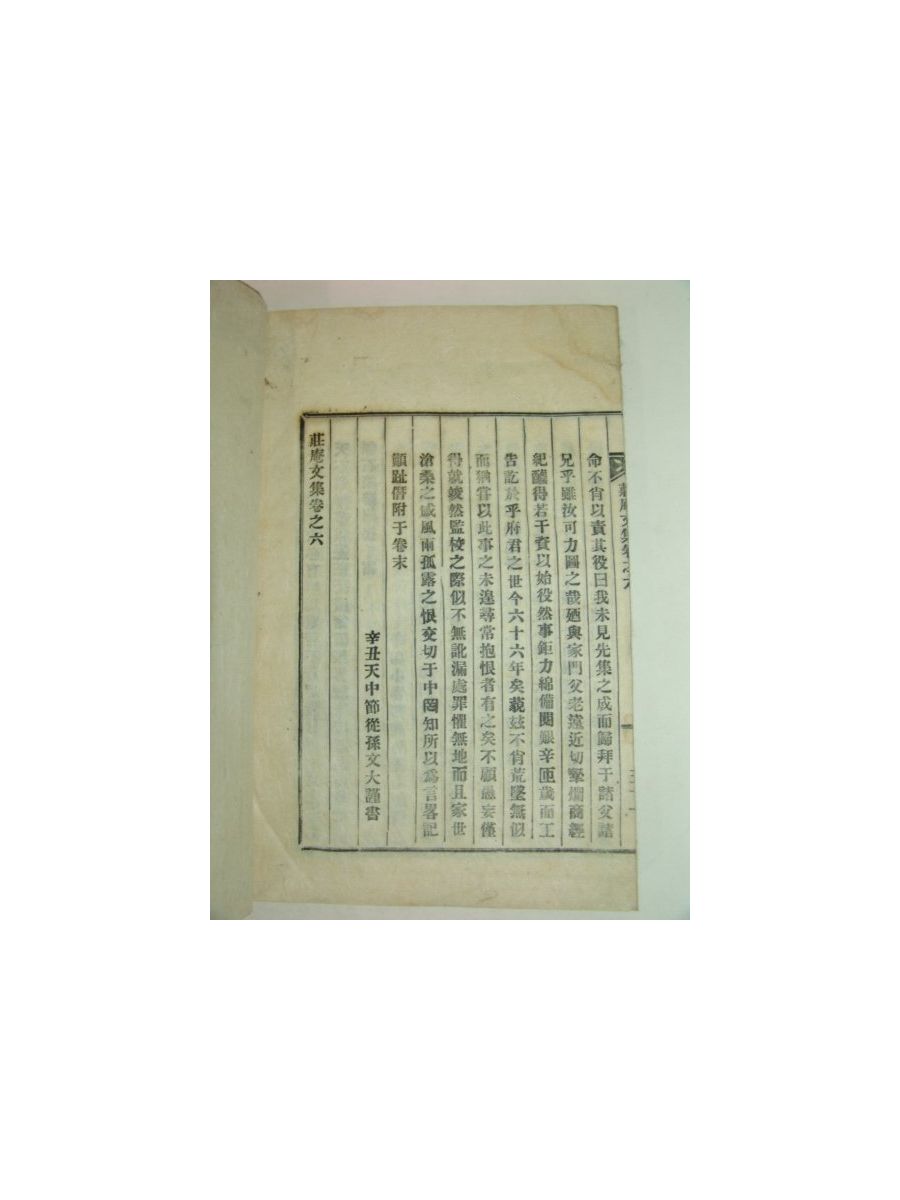 莊庵文集卷之六
命不肖以責其役曰我未見先集之成而歸拜于諸父諸
兄乎雖汝可力圖之哉廼與家門父老遠近切摯爛商經
紀醵得若干資以始役然事鉅力綿備閱艱辛匝歲而工
告訖於乎府君之世今六十六年矣藐玆不肖荒墜無似
而猶嘗以此事之未遑尋常抱恨者有之矣不顧愚妄僅
得就竣然監校之際似不無訛漏處罪懼無地而且家世
滄桑之感風雨孤露之恨交切于中罔知所以爲言畧記
顚趾僭附于卷末
辛丑天中節從孫文大謹書
莊庵文集卷之六